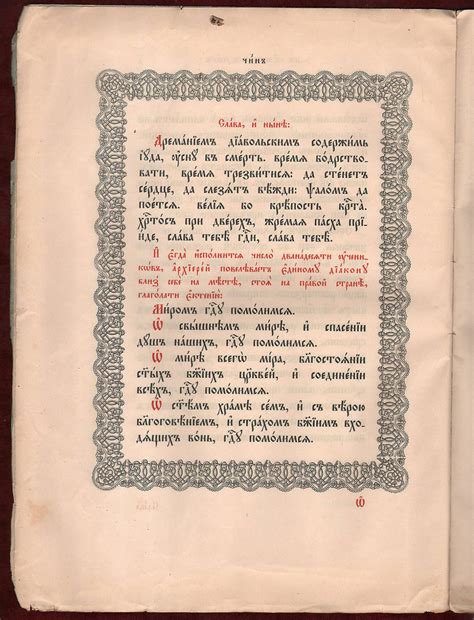 чи́нъ
Сла́ва, и҆ ны́нѣ:
Дрема́нїемъ дїа́вольскимъ содержи́мь
і҆у́да, ᲂу҆́сну въ сме́рть. вре́мѧ бо́дрство-
вати, вре́мѧ трезви́тисѧ: да сте́нетъ
се́рдце, да слезѧ́тъ вѣ́жди: ѱало́мъ да
пое́тсѧ. ве́лїѧ бо крѣ́пость крⷭ҇та̀.
хрⷭ҇то́съ при две́рехъ, жре́маѧ па́сха прїи́-
де, сла́ва тебѣ̀ гдⷭ҇и, сла́ва тебѣ̀.
И҆ є҆гда̀ и҆спо́лнитсѧ число̀ двана́десѧти ᲂу҆чени-
кѡ́въ, а҆рхїере́й повелѣва́етъ є҆ди́ному дїа́кону
бли́з себє̀ на мѣ́стѣ, стоѧ̀ на пра́вой странѣ̀,
глаго́лати є҆ктенїѝ:
Ми́ромъ гдⷭ҇у помо́лимсѧ.
Ѡ҆ свы́шнѣмъ ми́рѣ, и҆ спасе́нїи
дꙋ́шъ на́шихъ, гдⷭ҇у помо́лимсѧ.
Ѡ҆ ми́рѣ всегѡ̀ мі́ра, благостоѧ́нїи
ст҃ы́хъ бж҃їихъ цр҃кве́й, и҆ соедине́нїи
всѣ́хъ, гдⷭ҇у помо́лимсѧ.
Ѡ҆ ст҃ѣ́мъ хра́мѣ се́мъ, и҆ съ вѣ́рою
благоговѣ́нїемъ, и҆ стра́хомъ бж҃їимъ вхо-
дѧ́щихъ во́нь, гдⷭ҇у помо́лимсѧ.
Ѡ҆